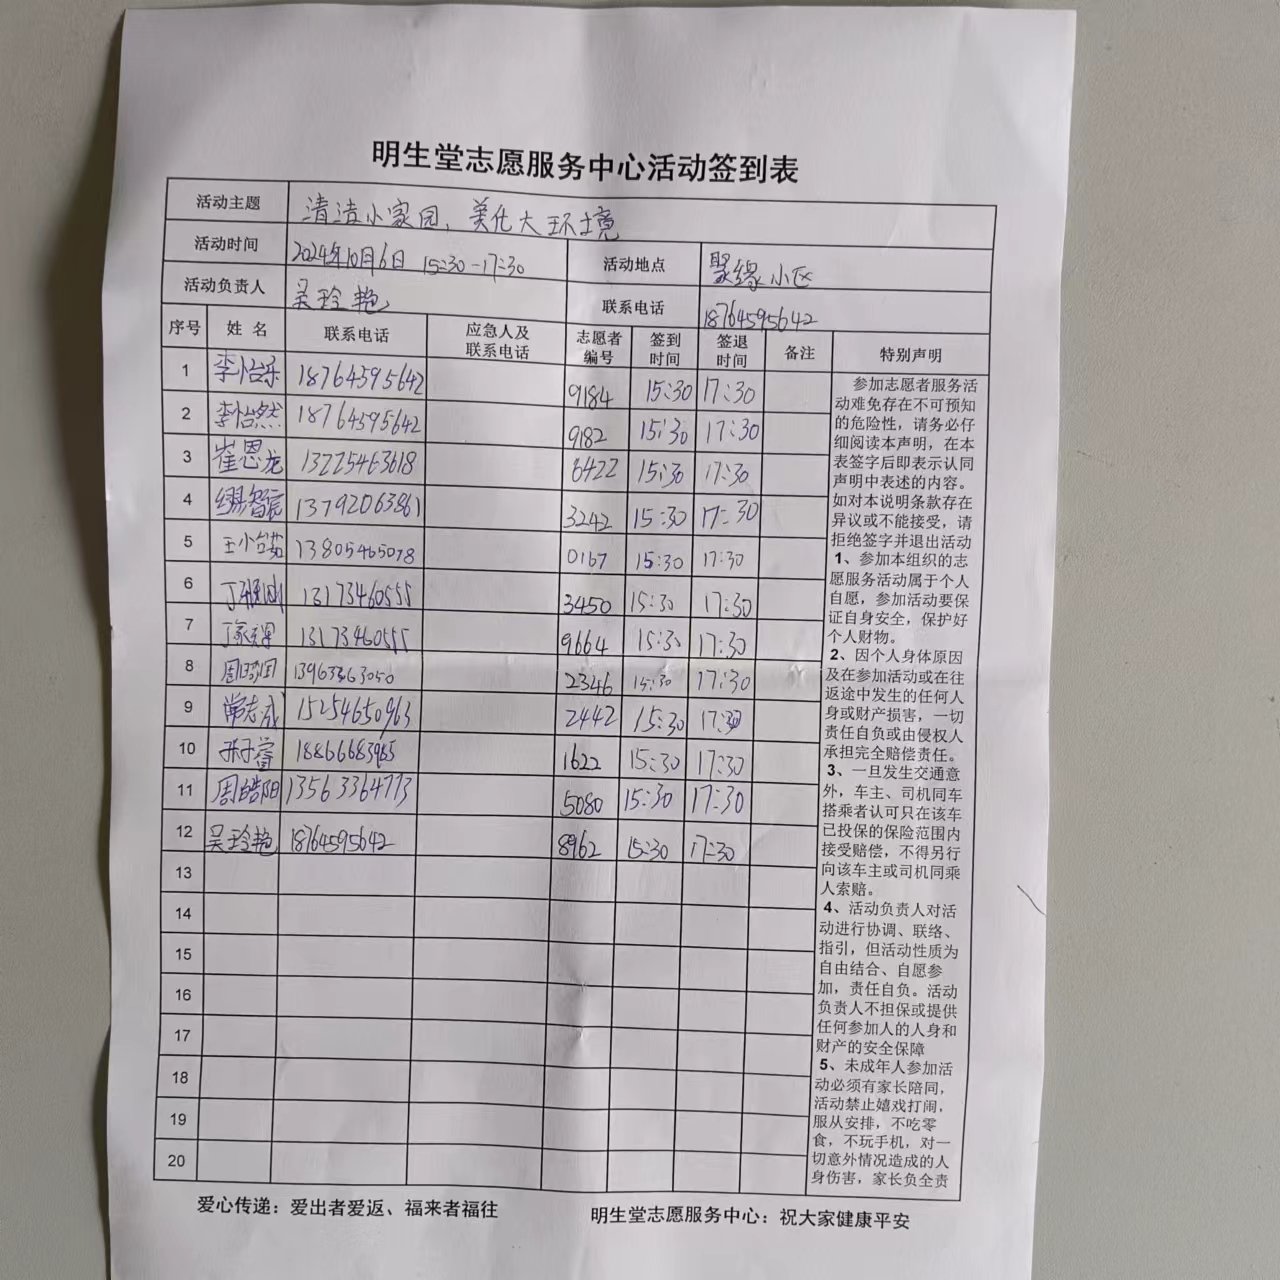 明生堂志愿服务中心活动签到表
活动主题 清洁小家园、美化大环境
活动时间 2024年10月6日 15:30-17:30 活动地点 聚缘小区
活动负责人 吴玲艳 联系电话 18764595642
序号 姓名 联系电话 应急人及联系电话 志愿者编号 签到时间 签退时间 备注 特别声明
1 李怡乐 18764595642 9184 15:30 17:30
2 李怡然 18764595642 9182 15:30 17:30
3 崔恩龙 13225463618 6422 15:30 17:30
4 智宸 13792063861 3242 15:30 17:30
5 王小茹 13805465078 0167 15:30 17:30
6 丁 13173460555 3450 15:30 17:30
7 丁家 13173460555 9664 15:30 17:30
8 周 13963363050 2346 15:30 17:30
9 常志成 15254650963 2442 15:30 17:30
10 孙子睿 1622 15:30 17:30
11 周皓阳 13563364773 5080 15:30 17:30
12 吴玲艳 18764595642 8962 15:30 17:30
13
14
15
16
17
18
19
20
参加志愿者服务活
动难免存在不可预知
的危险性，请务必仔
细阅读本声明，在本
表签字后即表示认同
声明中表述的内容。
如对本说明条款存在
异议或不能接受，请
拒绝签字并退出活动
1、参加本组织的志
愿服务活动属于个人
自愿，参加活动要保
证自身安全，保护好
个人财物。
2、因个人身体原因
及在参加活动或在往
返途中发生的任何人
身或财产损害，一切
责任自负或由侵权人
承担完全赔偿责任。
3、一旦发生交通意
外，车主、司机同车
搭乘者认可只在该车
已投保的保险范围内
接受赔偿，不得另行
向该车主或司机同乘
人索赔。
4、活动负责人对活
动进行协调、联络、
指引，但活动性质为
自由结合、自愿参
加，责任自负。活动
负责人不担保或提供
任何参加人的人身和
财产的安全保障
5、未成年人参加活
动必须有家长陪同，
活动禁止嬉戏打闹，
服从安排，不吃零
食，不玩手机，对一
切意外情况造成的人
身伤害，家长负全责
爱心传递：爱出者爱返、福来者福往 明生堂志愿服务中心：祝大家健康平安